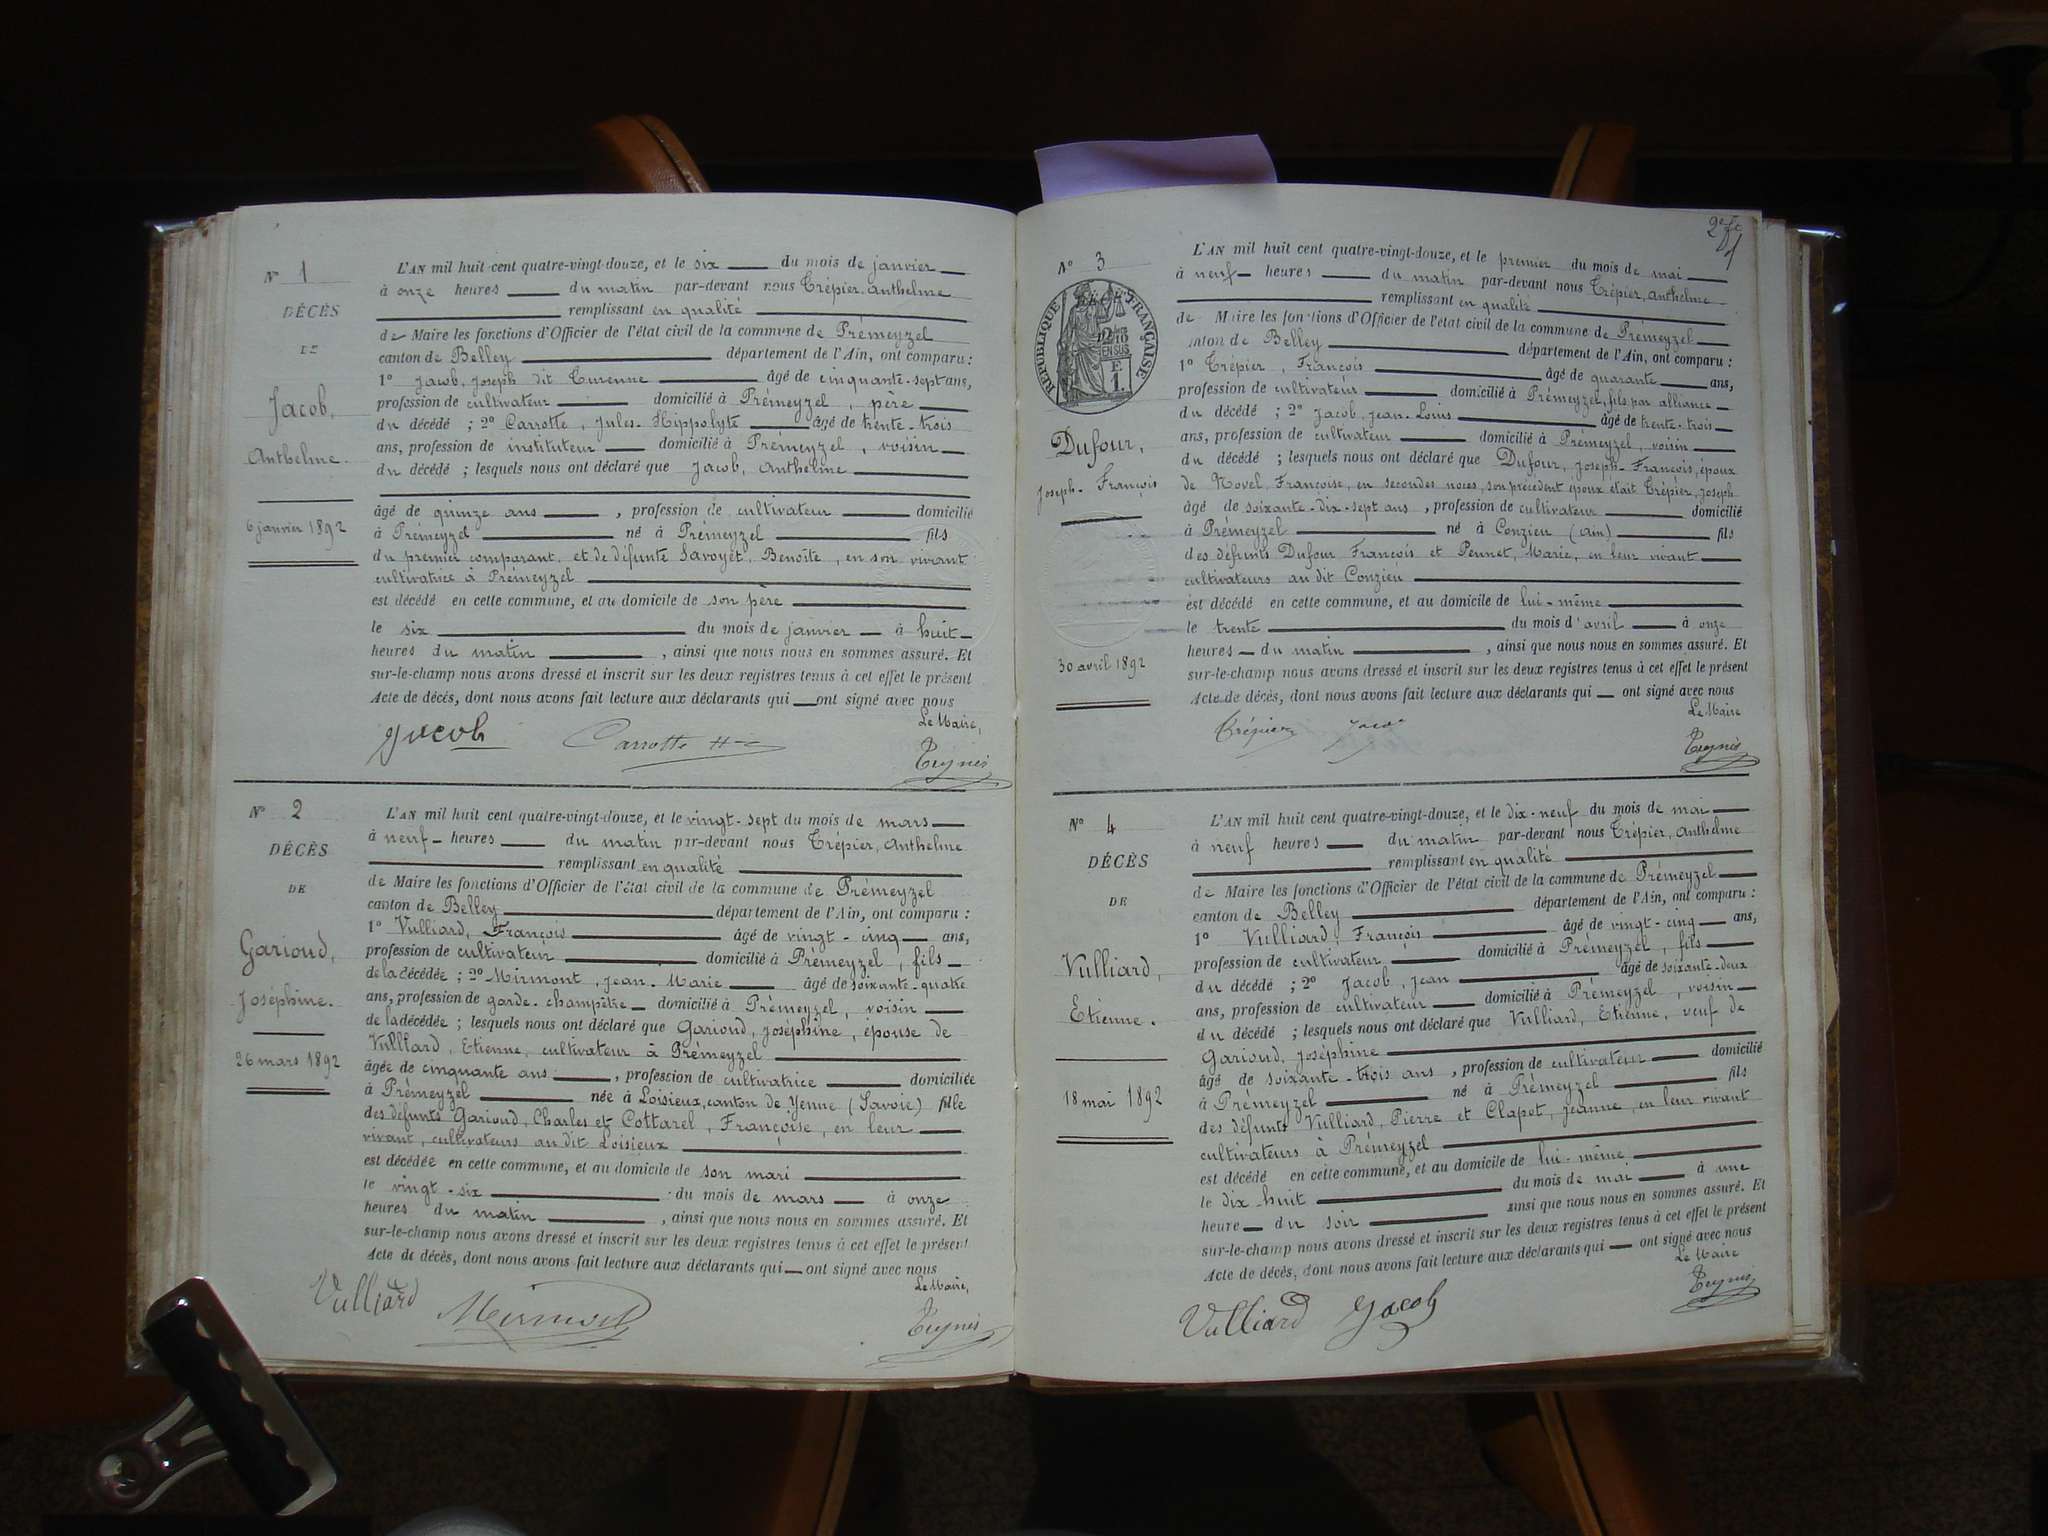 N° 1
DÉCÈS
DE
Jacob,
Anthelme.
6 janvier 1892
L'AN mil huit cent quatre-vingt-douze, et le six du mois de janvier
à onze heures du matin par-devant nous Trépier, Anthelme
remplissant en qualité
de Maire les fonctions d'Officier de l'état civil de la commune de Prémeyzel
canton de Belley département de l'Ain, ont comparu :
1° Jacob, Joseph dit Turenne âgé de cinquante-sept ans,
profession de cultivateur domicilié à Prémeyzel, père
du décédé ; 2° Carrotte, Jules-Hippolyte âgé de trente-trois
ans, profession de instituteur domicilié à Prémeyzel, voisin
du décédé ; lesquels nous ont déclaré que Jacob, Anthelme
âgé de quinze ans, profession de cultivateur domicilié
à Prémeyzel né à Prémeyzel fils
du premier comparant, et de défunte Savoyet, Benoîte, en son vivant
cultivatrice à Prémeyzel
est décédé en cette commune, et au domicile de son père
le six du mois de janvier à huit
heures du matin, ainsi que nous nous en sommes assuré. Et
sur-le-champ nous avons dressé et inscrit sur les deux registres tenus à cet effet le présent
Acte de décès, dont nous avons fait lecture aux déclarants qui ont signé avec nous
Le Maire,
Jacob Carrotte
N° 2
DÉCÈS
DE
Garioud,
Joséphine.
26 mars 1892
L'AN mil huit cent quatre-vingt-douze, et le vingt-sept du mois de mars
à neuf heures du matin par-devant nous Trépier, Anthelme
remplissant en qualité
de Maire les fonctions d'Officier de l'état civil de la commune de Prémeyzel
canton de Belley département de l'Ain, ont comparu :
1° Vulliard, François âgé de vingt-cinq ans,
profession de cultivateur domicilié à Prémeyzel, fils
de la décédée ; 2° Mirmont, Jean-Marie âgé de soixante-quatre
ans, profession de garde-champêtre domicilié à Prémeyzel, voisin
de la décédée ; lesquels nous ont déclaré que Garioud, Joséphine, épouse de
Vulliard, Etienne, cultivateur à Prémeyzel
âgée de cinquante ans, profession de cultivatrice domiciliée
à Prémeyzel née à Loisieux, canton de Yenne (Savoie) fille
des défunts Garioud, Charles et Cottarel, Françoise, en leur
vivant, cultivateurs au dit Loisieux
est décédée en cette commune, et au domicile de son mari
le vingt-six du mois de mars à onze
heures du matin, ainsi que nous nous en sommes assuré. Et
sur-le-champ nous avons dressé et inscrit sur les deux registres tenus à cet effet le présent
Acte de décès, dont nous avons fait lecture aux déclarants qui ont signé avec nous
Le Maire,
Vulliard Mirmont
N° 3
RÉPUBLIQUE FRANÇAISE
2/10
EN SUS
Dufour,
Joseph-François
30 avril 1892
L'AN mil huit cent quatre-vingt-douze, et le premier du mois de mai
à neuf heures du matin par-devant nous Trépier, Anthelme
remplissant en qualité
de Maire les fonctions d'Officier de l'état civil de la commune de Prémeyzel
canton de Belley département de l'Ain, ont comparu :
1° Trépier, François âgé de quarante ans,
profession de cultivateur domicilié à Prémeyzel, fils par alliance
du décédé ; 2° Jacob, Jean-Louis âgé de trente-trois
ans, profession de cultivateur domicilié à Prémeyzel, voisin
du décédé ; lesquels nous ont déclaré que Dufour, Joseph-François, époux
de Novel, Françoise, en secondes noces, son précédent époux était Trépier, Joseph
âgé de soixante-dix-sept ans, profession de cultivateur domicilié
à Prémeyzel né à Conzieu (Ain) fils
des défunts Dufour François et Pennet, Marie, en leur vivant
cultivateurs au dit Conzieu
est décédé en cette commune, et au domicile de lui-même
le trente du mois d'avril à onze
heures du matin, ainsi que nous nous en sommes assuré. Et
sur-le-champ nous avons dressé et inscrit sur les deux registres tenus à cet effet le présent
Acte de décès, dont nous avons fait lecture aux déclarants qui ont signé avec nous
Le Maire
Trépier Jacob
N° 4
DÉCÈS
DE
Vulliard,
Etienne.
18 mai 1892
L'AN mil huit cent quatre-vingt-douze, et le dix-neuf du mois de mai
à neuf heures du matin par-devant nous Trépier, Anthelme
remplissant en qualité
de Maire les fonctions d'Officier de l'état civil de la commune de Prémeyzel
canton de Belley département de l'Ain, ont comparu :
1° Vulliard, François âgé de vingt-cinq ans,
profession de cultivateur domicilié à Prémeyzel, fils
du décédé ; 2° Jacob, Jean âgé de soixante-deux
ans, profession de cultivateur domicilié à Prémeyzel, voisin
du décédé ; lesquels nous ont déclaré que Vulliard, Etienne, veuf de
Garioud, Joséphine
âgé de soixante-trois ans, profession de cultivateur domicilié
à Prémeyzel né à Prémeyzel fils
des défunts Vulliard, Pierre et Clapot, Jeanne, en leur vivant
cultivateurs à Prémeyzel
est décédé en cette commune, et au domicile de lui-même
le dix-huit du mois de mai à une
heure du soir ainsi que nous nous en sommes assuré. Et
sur-le-champ nous avons dressé et inscrit sur les deux registres tenus à cet effet le présent
Acte de décès, dont nous avons fait lecture aux déclarants qui ont signé avec nous
Le Maire
Vulliard Jacob